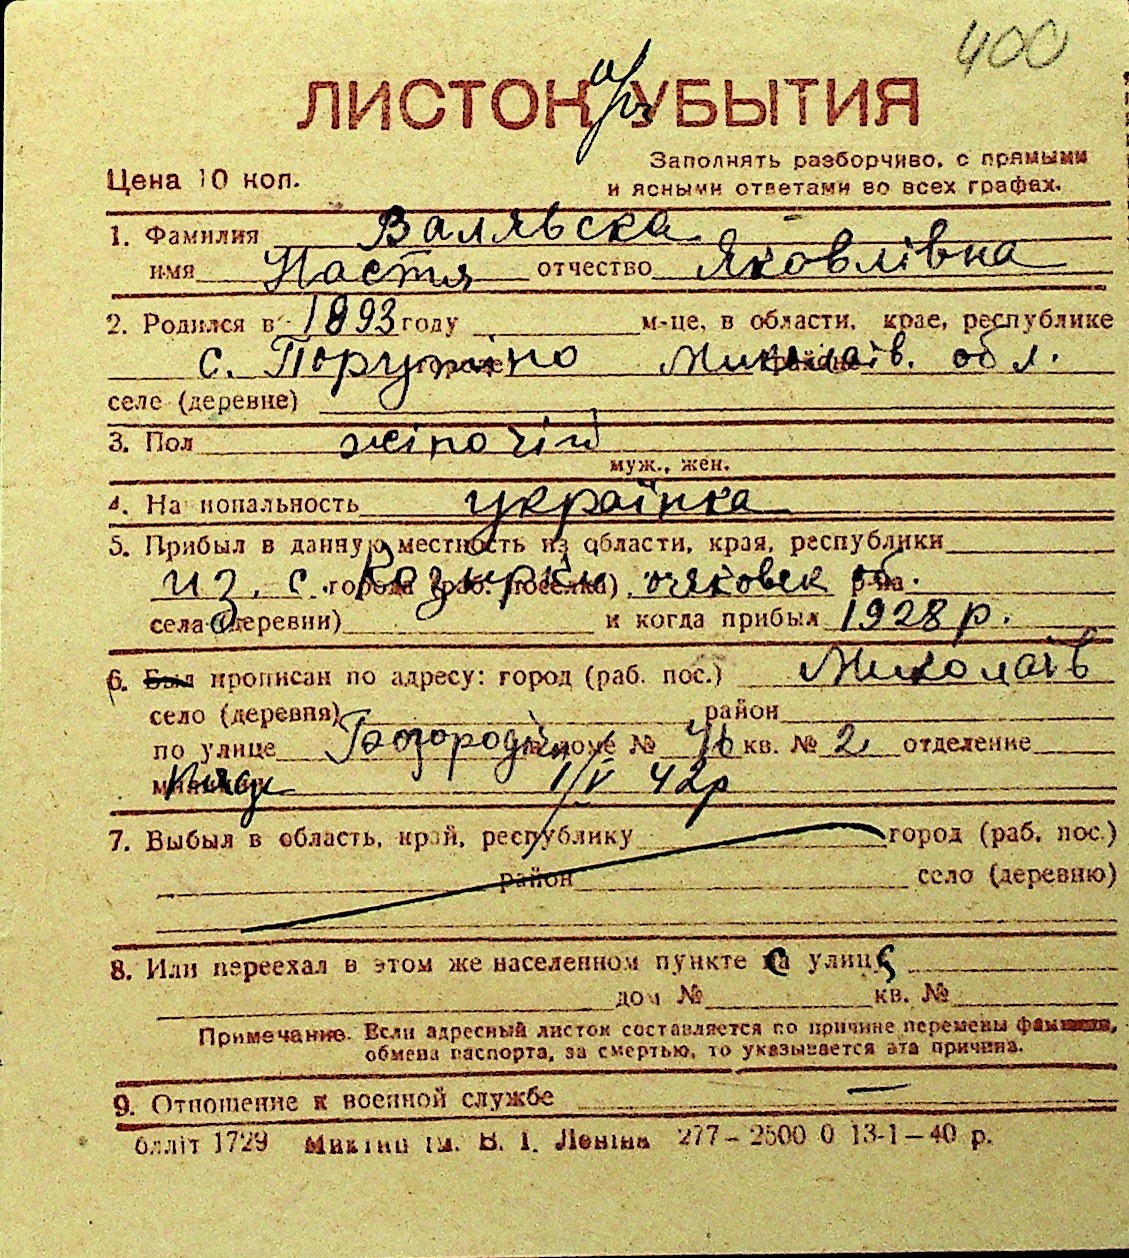 400
ЛИСТОК УБЫТИЯ
Цена 10 коп.
Заполнять разборчиво, с прямыми
и ясными ответами во всех графах.
1. Фамилия Валявська
имя Настя отчество Яковлівна
2. Родился в 1893 году м-це, в области, крае, республике
с. Порутіно городе Миколаїв. районе обл.
селе (деревне)
3. Пол жіночій
муж., жен.
4. Национальность українка
5. Прибыл в данную местность из области, края, республики
из. с. Козирки города (раб. поселка) очяковск об. р-на
села (деревни) и когда прибыл 1928 р.
6. Был прописан по адресу: город (раб. пос.) Миколаїв
село (деревня) район
по улице в доме № кв. № 2 отделение
милиции 1/V 42р
7. Выбыл в область, край, республику город (раб. пос.)
район село (деревню)
8. Или переехал в этом же населенном пункте на улицу
дом № кв. №
Примечание. Если адресный листок составляется по причине перемены фамилии,
обмена паспорта, за смертью, то указывается эта причина.
9. Отношение к военной службе —
блліт 1729 им. В. І. Леніна 277–2500 0 13-1–40 р.